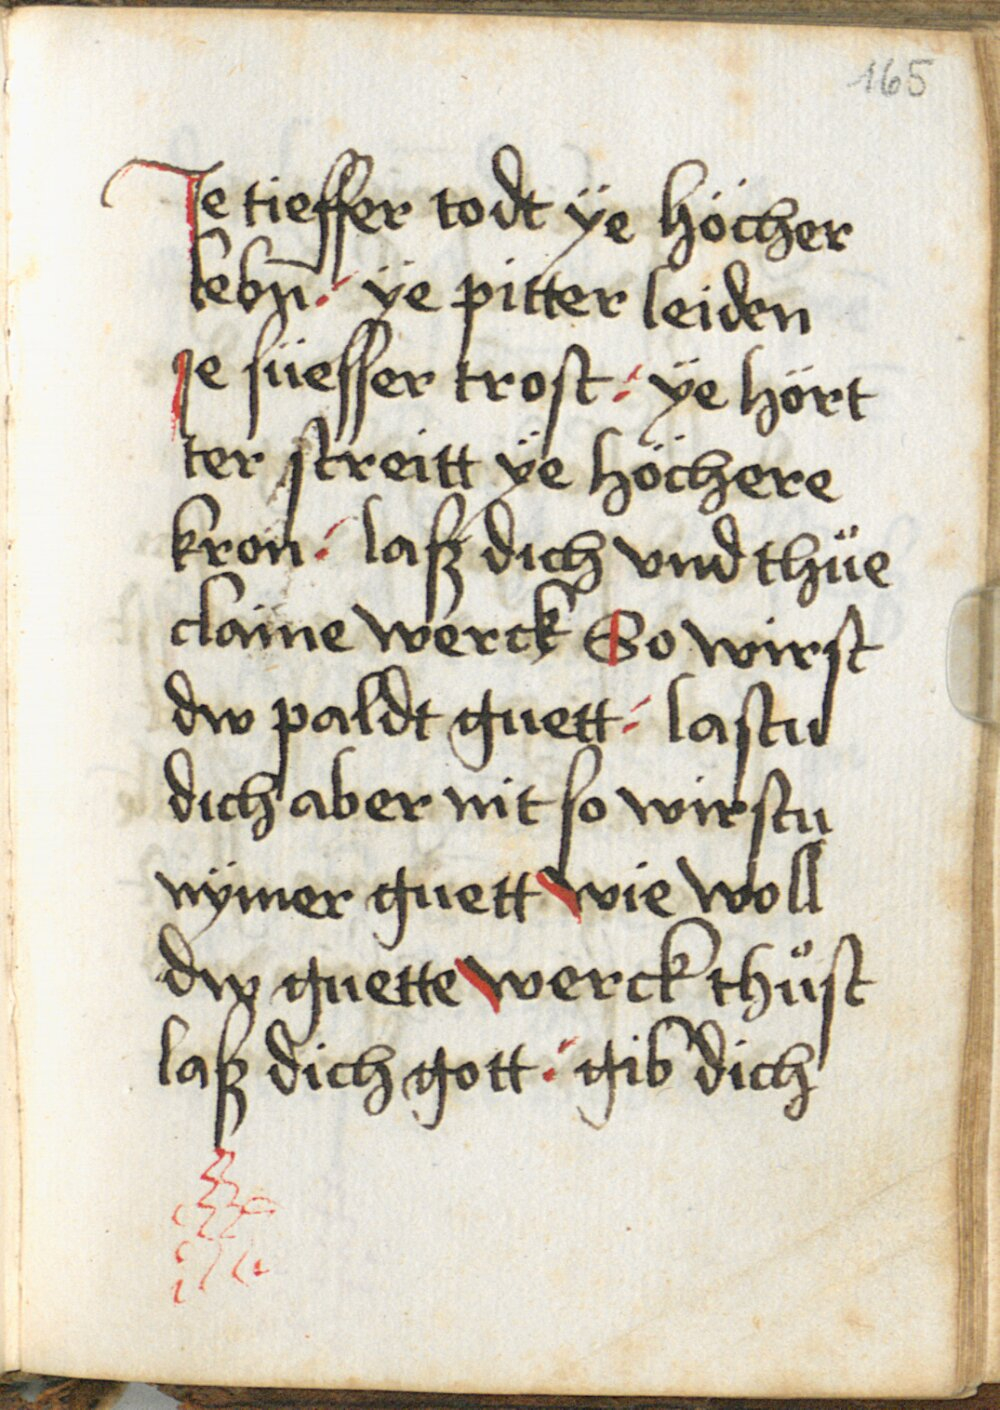 165
Je tieffer todt ÿe höcher
lebn̄ : ÿe pitter leiden
je süesser trost : ÿe hört
ter streitt ÿe höchere
kron : lasz dich vnd thüe
claine werck So wirst
dw paldt guett : lastu
dich aber nit so wirstu
nÿmer guett wie woll
dw guette werck thůst
lasz dich gott : gib dich